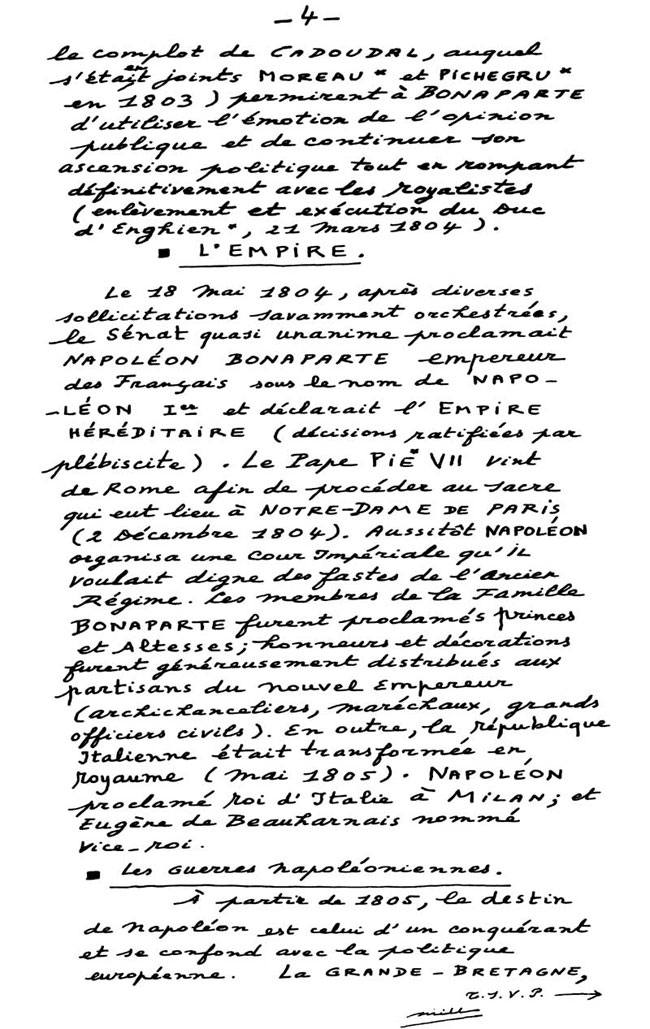 — 4 —
le complot de CADOUDAL, auquel
s'étaient joints MOREAU* et PICHEGRU*
en 1803) permirent à BONAPARTE
d'utiliser l'émotion de l'opinion
publique et de continuer son
ascension politique tout en rompant
définitivement avec les royalistes
(enlèvement et exécution du Duc
d'Enghien*, 21 Mars 1804).
▪ L'EMPIRE.
Le 18 Mai 1804, après diverses
sollicitations savamment orchestrées,
le Sénat quasi unanime proclamait
NAPOLÉON BONAPARTE empereur
des Français sous le nom de NAPO-
-LÉON Ier et déclarait l'EMPIRE
HÉRÉDITAIRE (décisions ratifiées par
plébiscite). Le Pape PIE* VII vint
de Rome afin de procéder au sacre
qui eut lieu à NOTRE-DAME DE PARIS
(2 Décembre 1804). Aussitôt NAPOLÉON
organisa une Cour Impériale qu'il
voulait digne des fastes de l'Ancien
Régime. Les membres de la Famille
BONAPARTE furent proclamés Princes
et Altesses; honneurs et décorations
furent généreusement distribués aux
partisans du nouvel Empereur
(archichanceliers, maréchaux, grands
officiers civils). En outre, la république
Italienne était transformée en
royaume (Mai 1805). NAPOLÉON
proclamé roi d'Italie à MILAN; et
Eugène de Beauharnais nommé
Vice-roi.
▪ Les Guerres Napoléoniennes.
À partir de 1805, le destin
de Napoléon est celui d'un conquérant
et se confond avec la politique
européenne. La GRANDE-BRETAGNE,
T.S.V.P. →